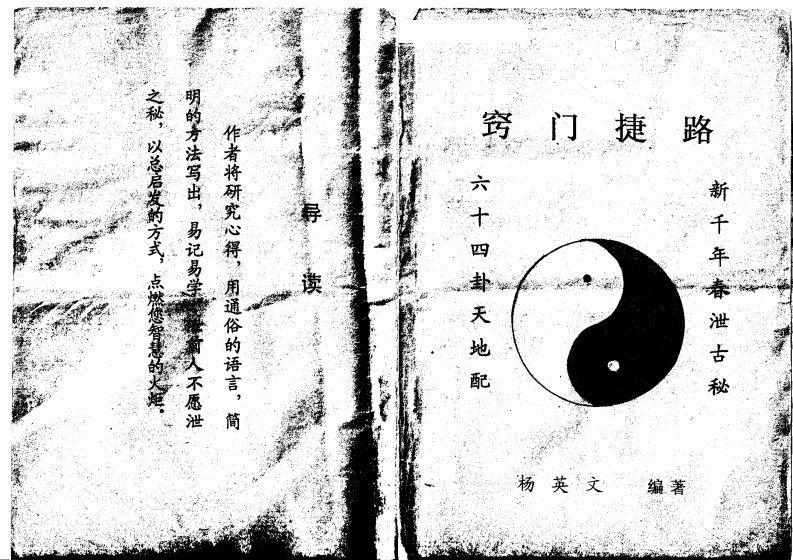 窍门捷路
新千年春泄古秘
六十四卦天地配
杨英文 编著
导读
作者将研究心得，用通俗的语言，简
明的方法写出，易记易学，泄前人不愿泄
之秘，以总启发的方式，点燃您智慧的火炬。